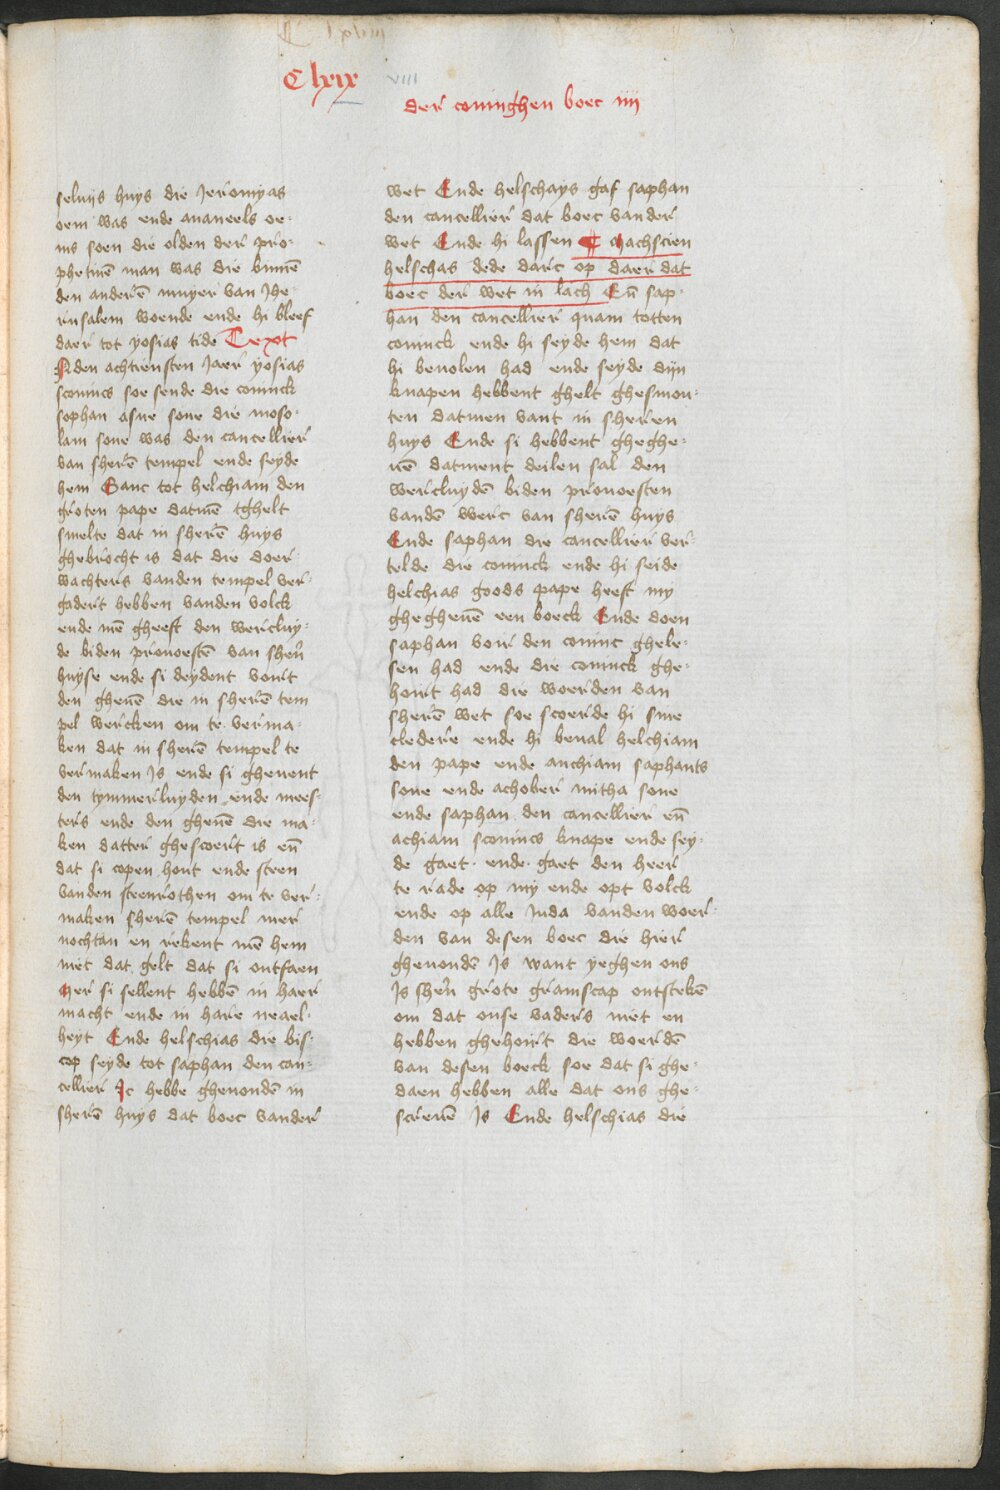 C lxix viii
der coninghen boec iiij
selmijs huys die Jeromyas
oem was ende ananeels oe-
ms soen die olden der pro-
phetinē man was die binnē
den anderē muyer van Jhe-
rusalem woende ende hi bleef
daer tot yosias tide Text
Inden achtiensten Jaer yosias
sconincs soe sende die coninck
sophan asue sone die moso-
lam sone was den cancellier
van sherē tempel ende seyde
hem Ganc tot helchiam den
groten pape datmē tghelt
smelte dat in sherē huys
ghebrocht is dat die doer-
wachters vanden tempel ver-
gadert hebben vanden volck
ende mē gheeft den wercluy-
de biden provoestē van sherē
huyse ende si deydent vort
den ghenē die in sherē tem
pel wercken om te verma-
ken dat in sherē tempel te
vermaken is ende si ghevent
den tymmerluyden ende mees-
ters ende den ghenē die ma-
ken datter ghescoert is eñ
dat si copen hout ende steen
vanden steenrothen om te ver-
maken sherē tempel mer
nochtan en rekent mē hem
niet dat gelt dat si ontfaen
Mer si sellent hebbē in haer
macht ende in hare neael-
heyt Ende helschias die bis-
cop seyde tot saphan den can-
cellier Ic hebbe ghevondē in
sherē huys dat boec vander
wet Ende helschays gaf saphan
den cancellier dat boec vander
wet Ende hi lassen ¶ Machscien
helschas dede darc op daer dat
boec der wet in lach Eñ sap-
han den cancellier quam totten
coninck ende hi seyde hem dat
hi bevolen had ende seyde dijn
knapen hebbent ghelt ghesmou-
ten datmen vant in sheren
huys Ende si hebbent gheghe-
vē datment deilen sal den
wercluydē biden provoesten
vandē werc van sherē huys
Ende saphan die cancellier ver-
telde die coninck ende hi seide
helchias goods pape heeft my
gheghevē een boeck Ende doen
saphan vor den coninc ghele-
sen had ende die coninck ghe-
hoirt had die woerden van
sherē wet soe scoerde hi sine
cledere ende hi beval helchiam
den pape ende anchiam saphants
sone ende achober mitha sone
ende saphan den cancellier eñ
achiam sconincs knape ende sey-
de gaet ende gaet den heer
te rade op my ende opt volck
ende op alle Juda vanden woer-
den van desen boec die hier
ghevondē is want yeghen ons
is sherē grote gramscap ontstekē
om dat onse vaders niet en
hebben ghehoirt die woerdē
van desen boeck soe dat si ghe-
daen hebben alle dat ons ghe-
screvē is Ende helschias die